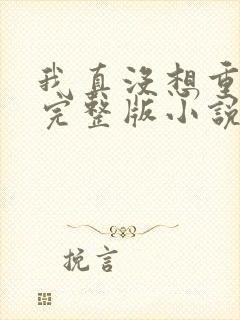 我真沒想重
完整版小說
挽言